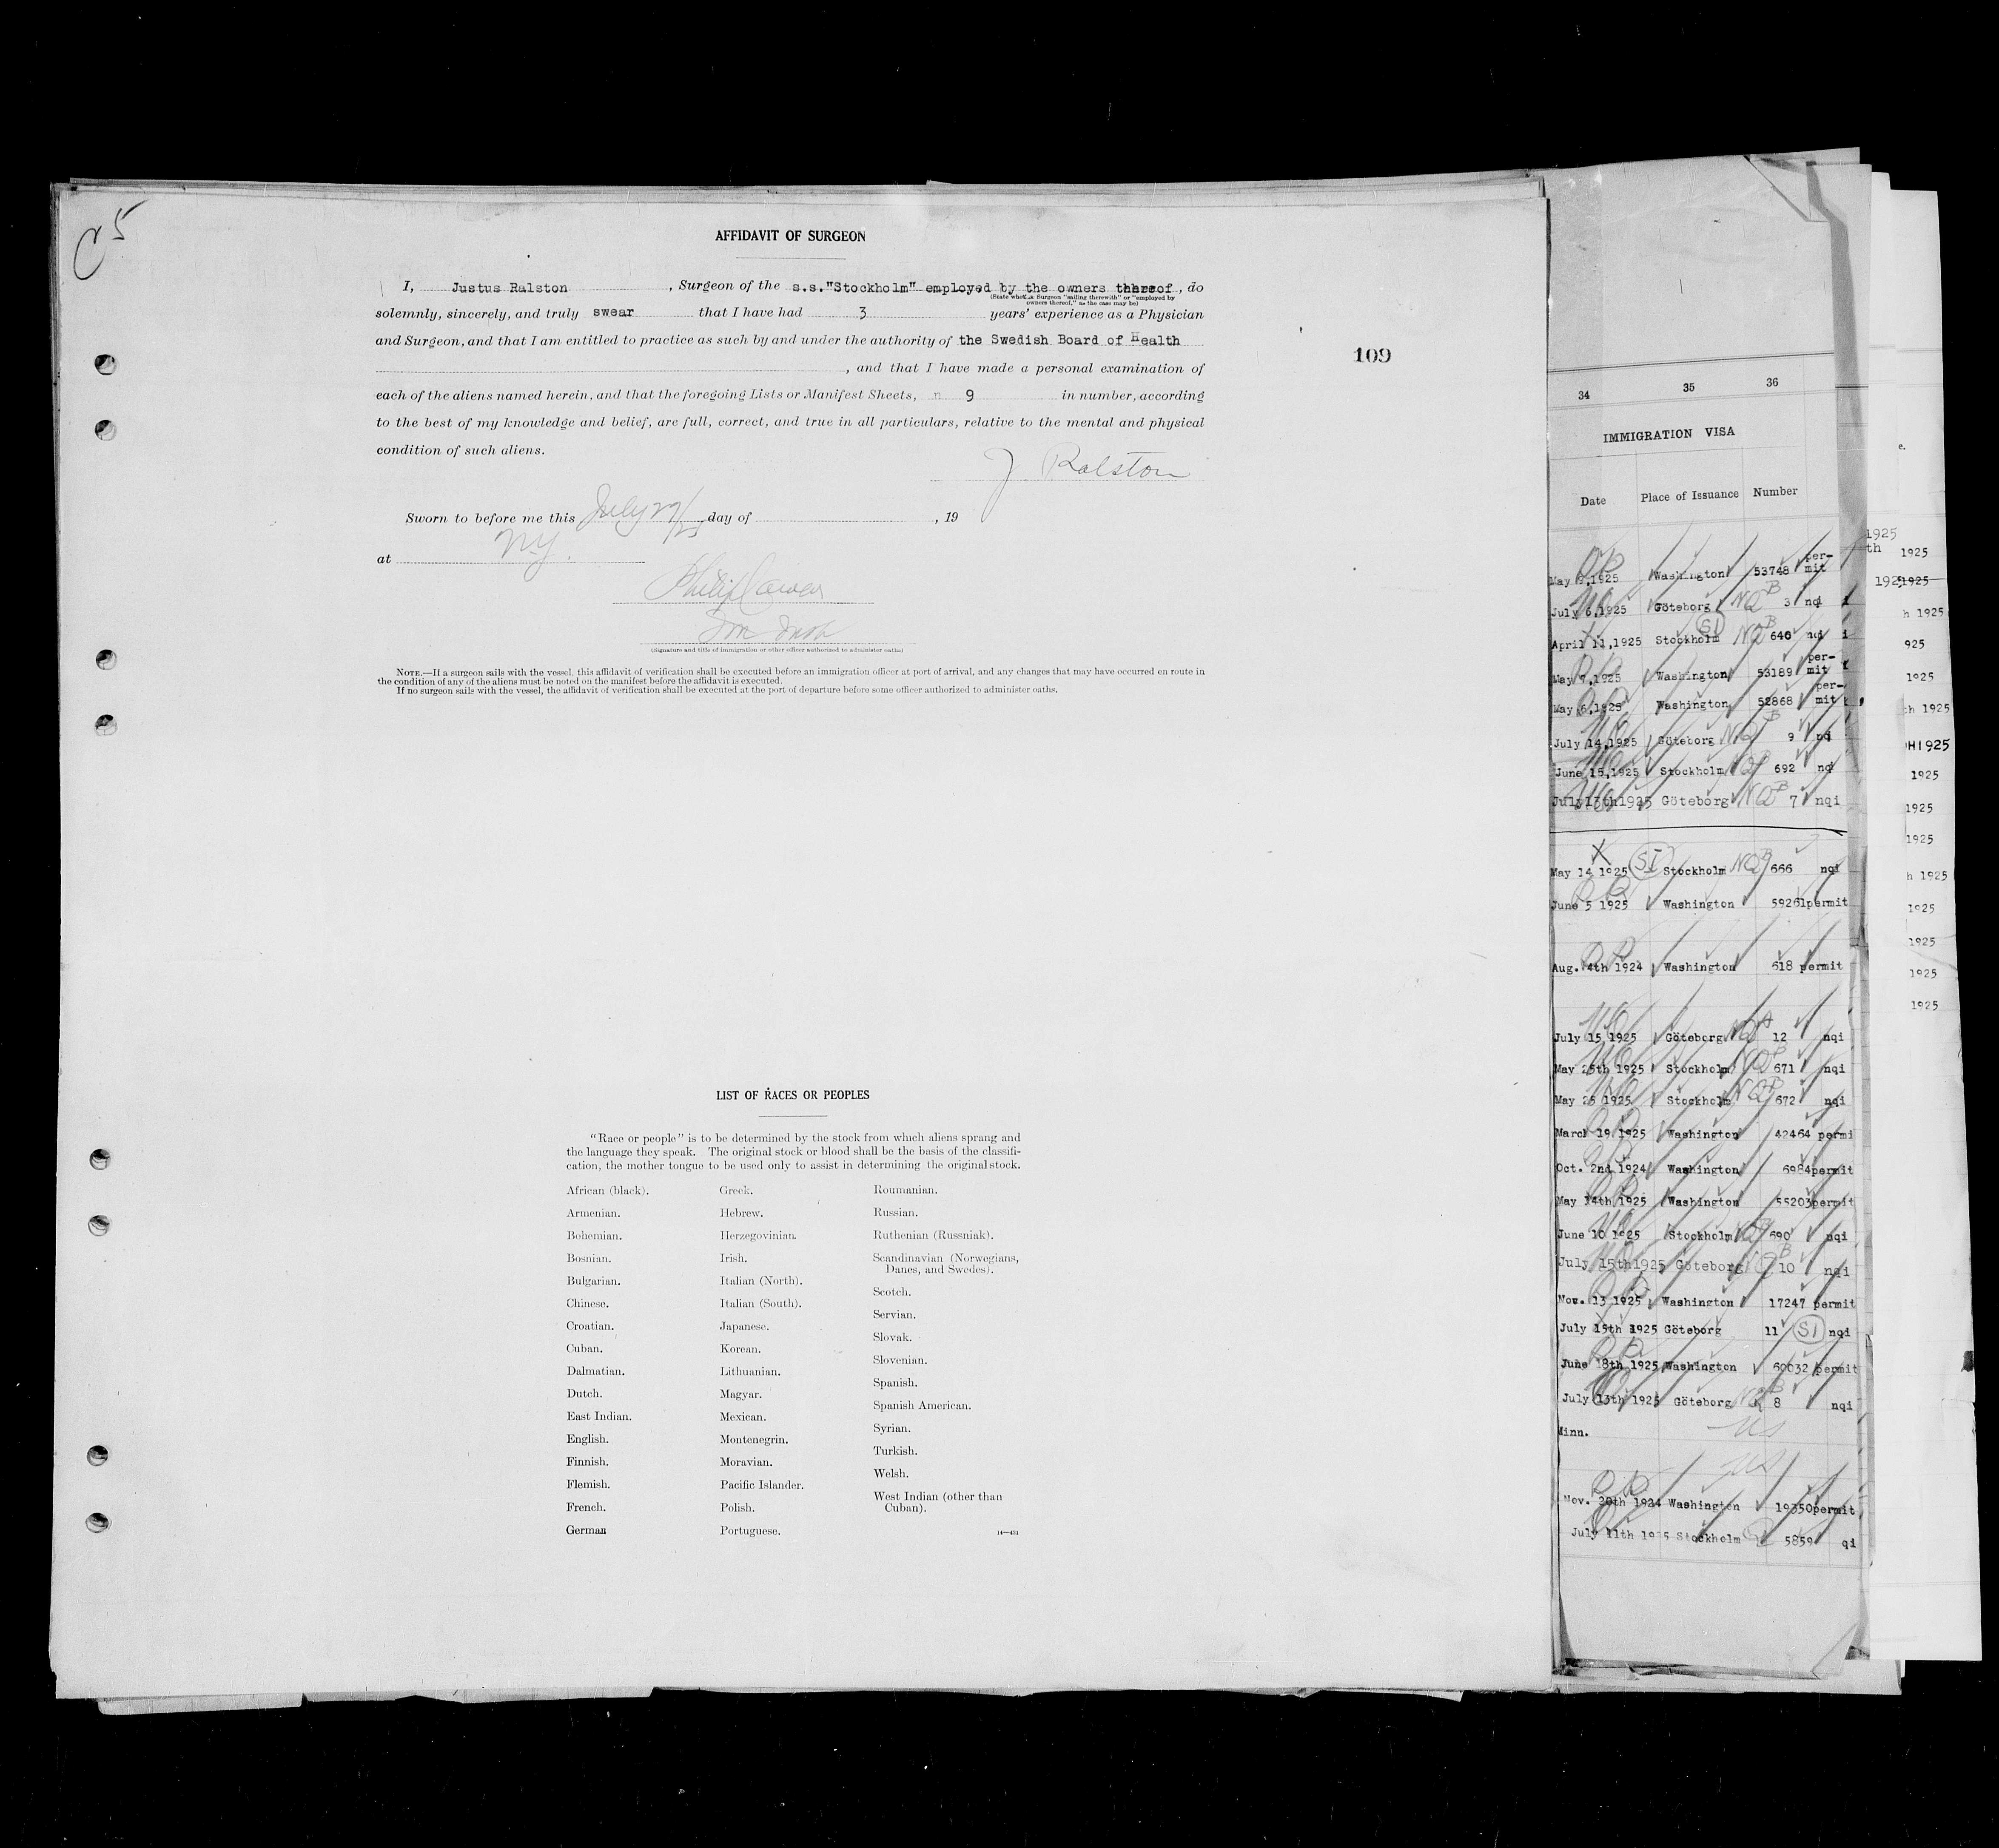 C 5
AFFIDAVIT OF SURGEON
I, Justus Ralston, Surgeon of the s.s."Stockholm" employed by the owners thereof, do
(State whether Surgeon "sailing therewith" or "employed by
owners thereof," as the case may be)
solemnly, sincerely, and truly swear that I have had 3 years' experience as a Physician
and Surgeon, and that I am entitled to practice as such by and under the authority of the Swedish Board of Health
, and that I have made a personal examination of
each of the aliens named herein, and that the foregoing Lists or Manifest Sheets, 9 in number, according
to the best of my knowledge and belief, are full, correct, and true in all particulars, relative to the mental and physical
condition of such aliens.
J Ralston
Sworn to before me this July 29/25 day of , 19
at N.Y.
Philip Cowen
(Signature and title of immigration or other officer authorized to administer oaths)
NOTE.—If a surgeon sails with the vessel, this affidavit of verification shall be executed before an immigration officer at port of arrival, and any changes that may have occurred en route in
the condition of any of the aliens must be noted on the manifest before the affidavit is executed.
If no surgeon sails with the vessel, the affidavit of verification shall be executed at the port of departure before some officer authorized to administer oaths.
109
LIST OF RACES OR PEOPLES
"Race or people" is to be determined by the stock from which aliens sprang and
the language they speak. The original stock or blood shall be the basis of the classifi-
cation, the mother tongue to be used only to assist in determining the original stock.
African (black).
Armenian.
Bohemian.
Bosnian.
Bulgarian.
Chinese.
Croatian.
Cuban.
Dalmatian.
Dutch.
East Indian.
English.
Finnish.
Flemish.
French.
German
Greek.
Hebrew.
Herzegovinian.
Irish.
Italian (North).
Italian (South).
Japanese.
Korean.
Lithuanian.
Magyar.
Mexican.
Montenegrin.
Moravian.
Pacific Islander.
Polish.
Portuguese.
Roumanian.
Russian.
Ruthenian (Russniak).
Scandinavian (Norwegians,
Danes, and Swedes).
Scotch.
Servian.
Slovak.
Slovenian.
Spanish.
Spanish American.
Syrian.
Turkish.
Welsh.
West Indian (other than
Cuban).
14—431
34 35 36
IMMIGRATION VISA
Date Place of Issuance Number
May 1925 Washington 53748 per-
mit
July 6,1925 Göteborg NQB 3 nqi
April 11,1925 Stockholm SI NQB 646 nqi
May 9,1925 Washington 53189 per-
mit
May 6,1925 Washington 52868 per-
mit
July 14,1925 Göteborg NQB 9 nqi
June 15,1925 Stockholm NQB 692 nqi
July13th1925 Göteborg NQB 7 nqi
May 14 1925 SI Stockholm NQB 666 nqi
June 5 1925 Washington 59261permit
Aug. 4th 1924 Washington 618 permit
July 15 1925 Göteborg NQA 12 nqi
May 25th 1925 Stockholm NQB 671 nqi
May 25 1925 Stockholm NQB 672 nqi
March 19 1925 Washington 42464 permi
Oct. 2nd 1924 Washington 6984permit
May 14th 1925 Washington 55203permit
June 10 1925 Stockholm NQB 690 nqi
July 15th1925 Göteborg NQB 10 nqi
Nov. 13 1925 Washington 17247 permit
July 15th 1925 Göteborg 11 SI nqi
June 18th 1925 Washington 60032 permit
July 13th 1925 Göteborg NQB 8 nqi
Minn. US
US
Nov. 20th 1924 Washington 19350permit
July 11th 1925 Stockholm Q 5859 qi
1925
th 1925
1925
h 1925
925
1925
ch 1925
H1925
1925
1925
1925
h 1925
1925
1925
1925
1925